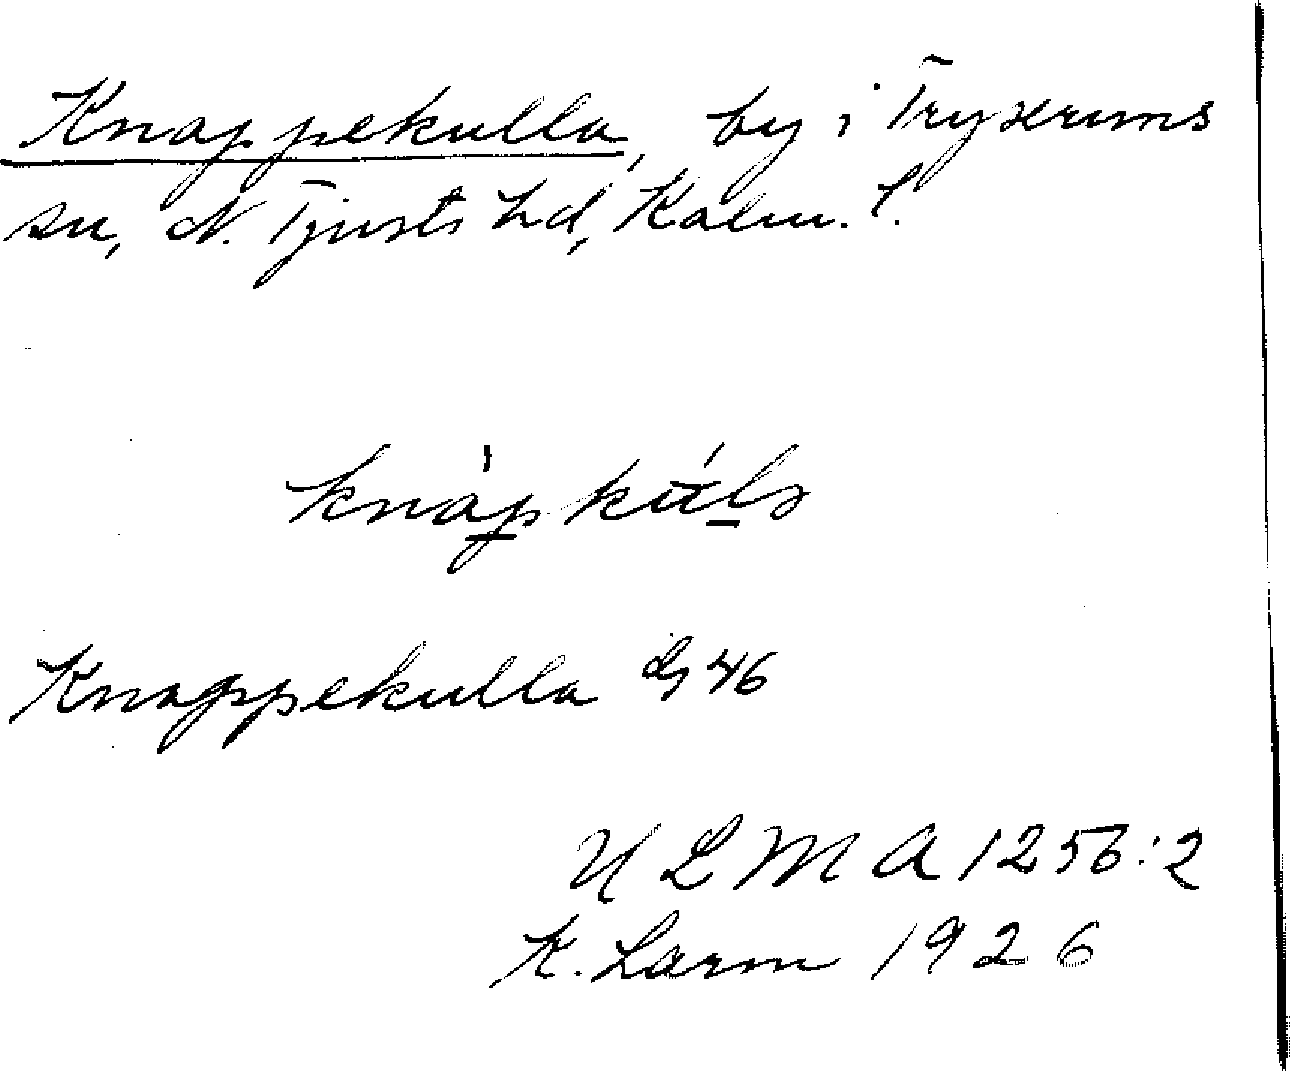 Knappekulla, by i Tryserums
sn, N. Tjusts hd, Kalm. l.
knàpkúlə
Knappekulla 46
ULMA 1256:2
K. Larm 1926